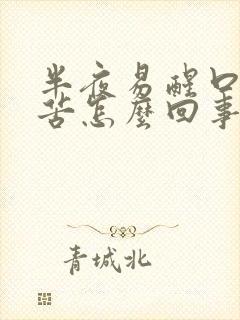 半夜易醒口
苦怎麼回事
青城北